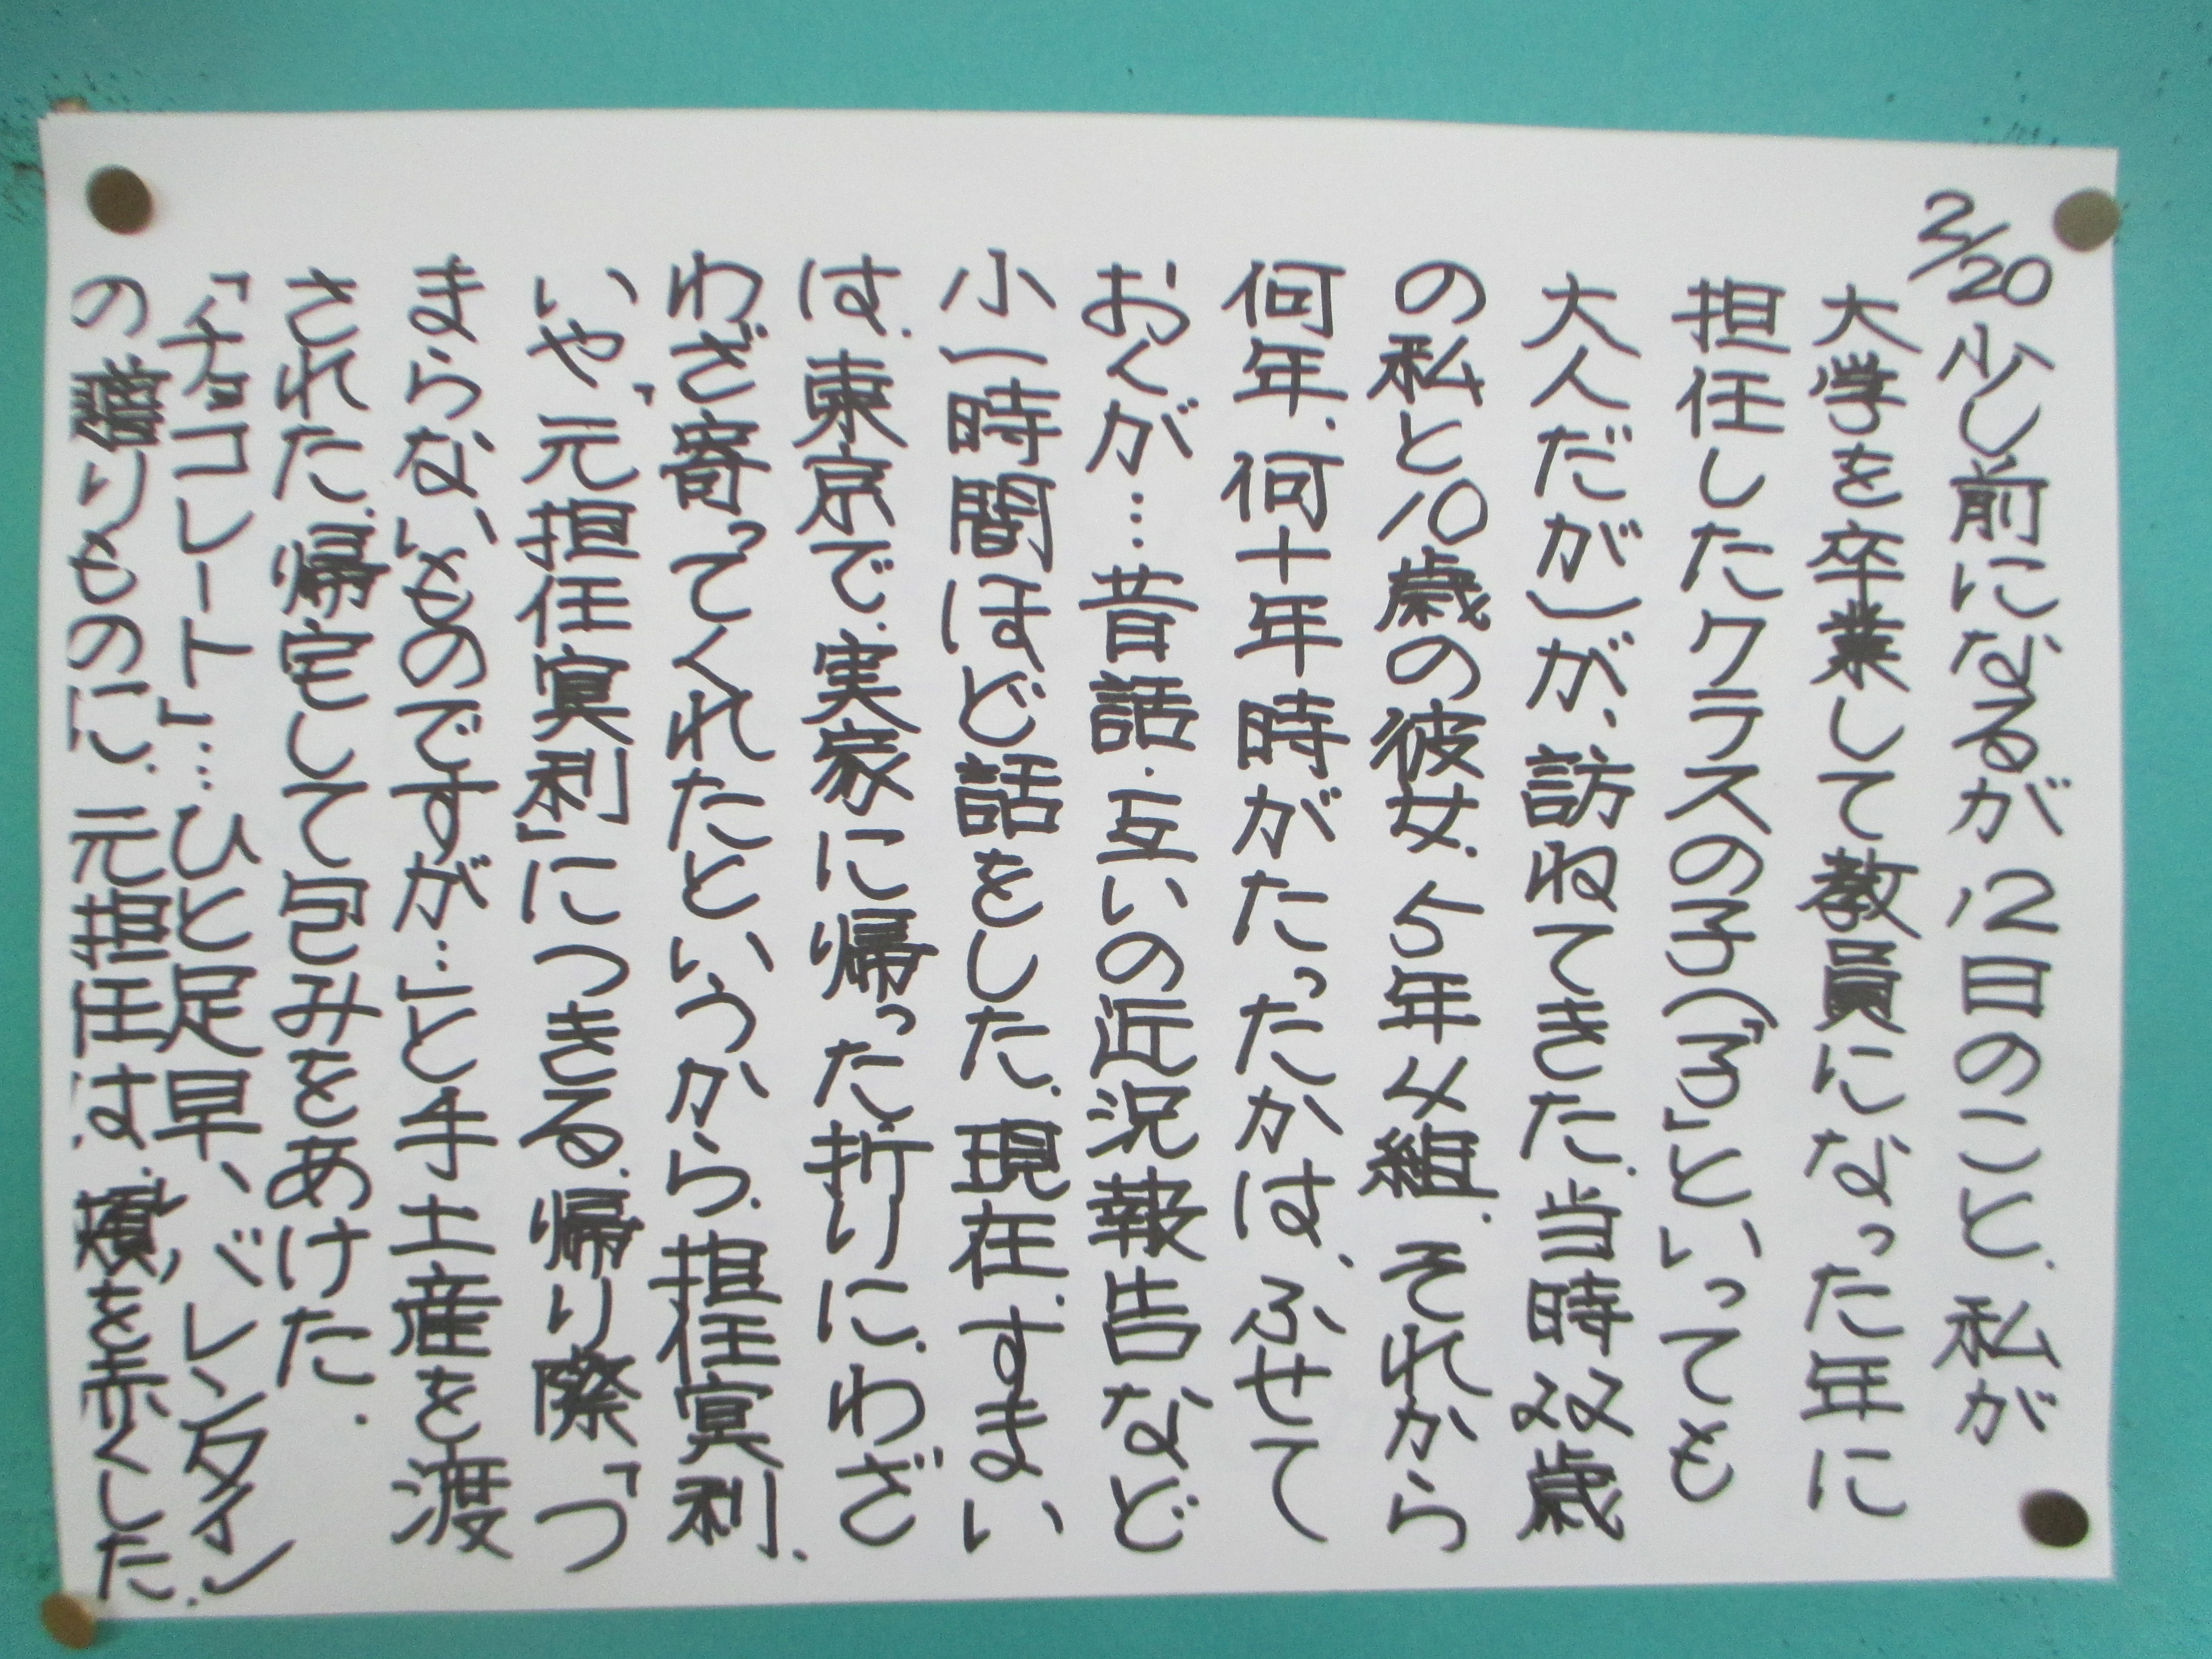 2/20 少し前になるが 12日のこと. 私が
大学を卒業して教員になった年に
担任したクラスの子(「子」といっても
大人だが)が、訪ねてきた. 当時22歳
の私と10歳の彼女. 5年4組. それから
何年. 何十年時がたったかは、ふせて
おくが…昔話・互いの近況報告など
小一時間ほど話をした. 現在. すまい
は. 東京で. 実家に帰った折りに. わざ
わざ寄ってくれたというから. 担任冥利.
いや、「元担任冥利」につきる. 帰り際「つ
まらないものですが…」と手土産を渡
された. 帰宅して包みをあけた.
「チョコレート」…ひと足早い、バレンタイン
の贈りものに. 元担任は. 頬を赤くした.